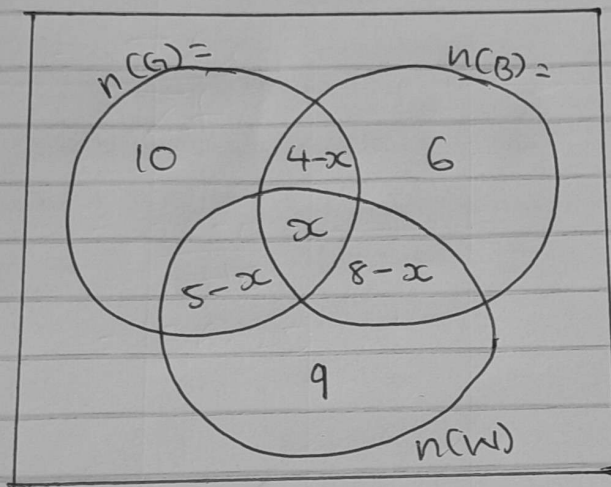 n(G)=
n(B)=
10
4-x
6
x
5-x
8-x
9
n(W)